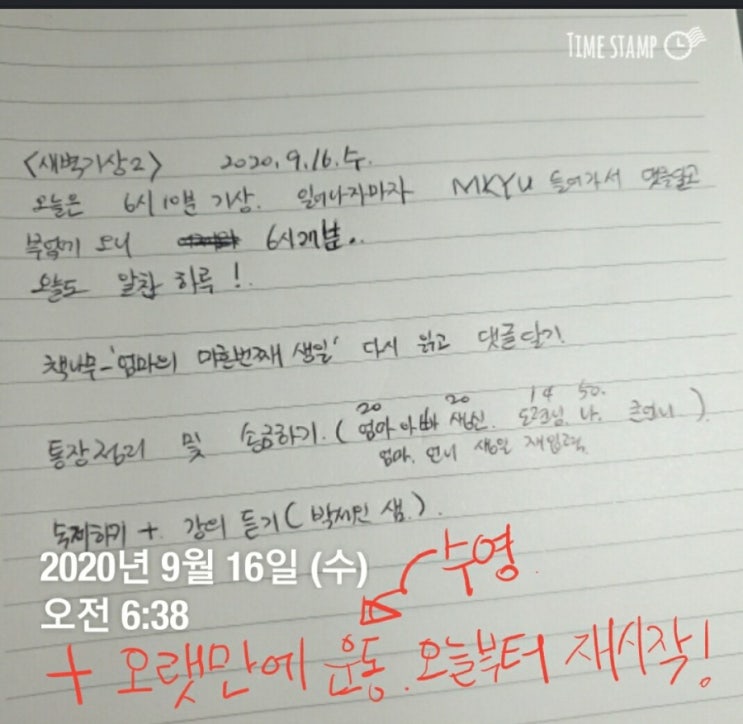 TIME STAMP
<새벽기상2> 2020.9.16.수.
오늘은 6시10분 기상. 일어나자마자 MKYU 들어가서 댓글달고
보니 6시27분..
오늘도 알찬 하루!
책나무-'엄마의 마흔번째 생일' 다시 읽고 댓글달기
20 20 14 50.
통장정리 및 송금하기.(엄마아빠 생신. 나. 큰언니).
엄마. 언니 생일 재입력.
숙제하기 + 강의 듣기(박제인 샘).
수영
2020년 9월 16일 (수)
오전 6:38
+ 오랫만에 운동. 오늘부터 재시작!